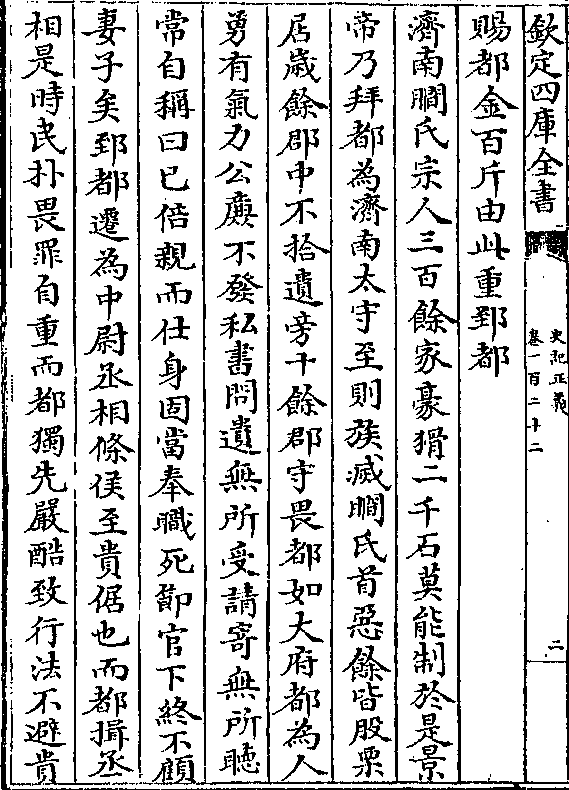 欽定四庫全書
史記正義
卷一百二十二
二
賜都金百斤由此重郅都
濟南瞷氏宗人三百餘家豪猾二千石莫能制於是景
帝乃拜都為濟南太守至則族滅瞷氏首惡餘皆股栗
居歲餘郡中不拾遺旁十餘郡守畏都如大府都為人
勇有氣力公廉不發私書問遺無所受請寄無所聽
常自稱曰已倍親而仕身固當奉職死節官下終不顧
妻子矣郅都遷為中尉丞相條侯至貴倨也而都揖丞
相是時民朴畏罪自重而都獨先嚴酷致行法不避貴